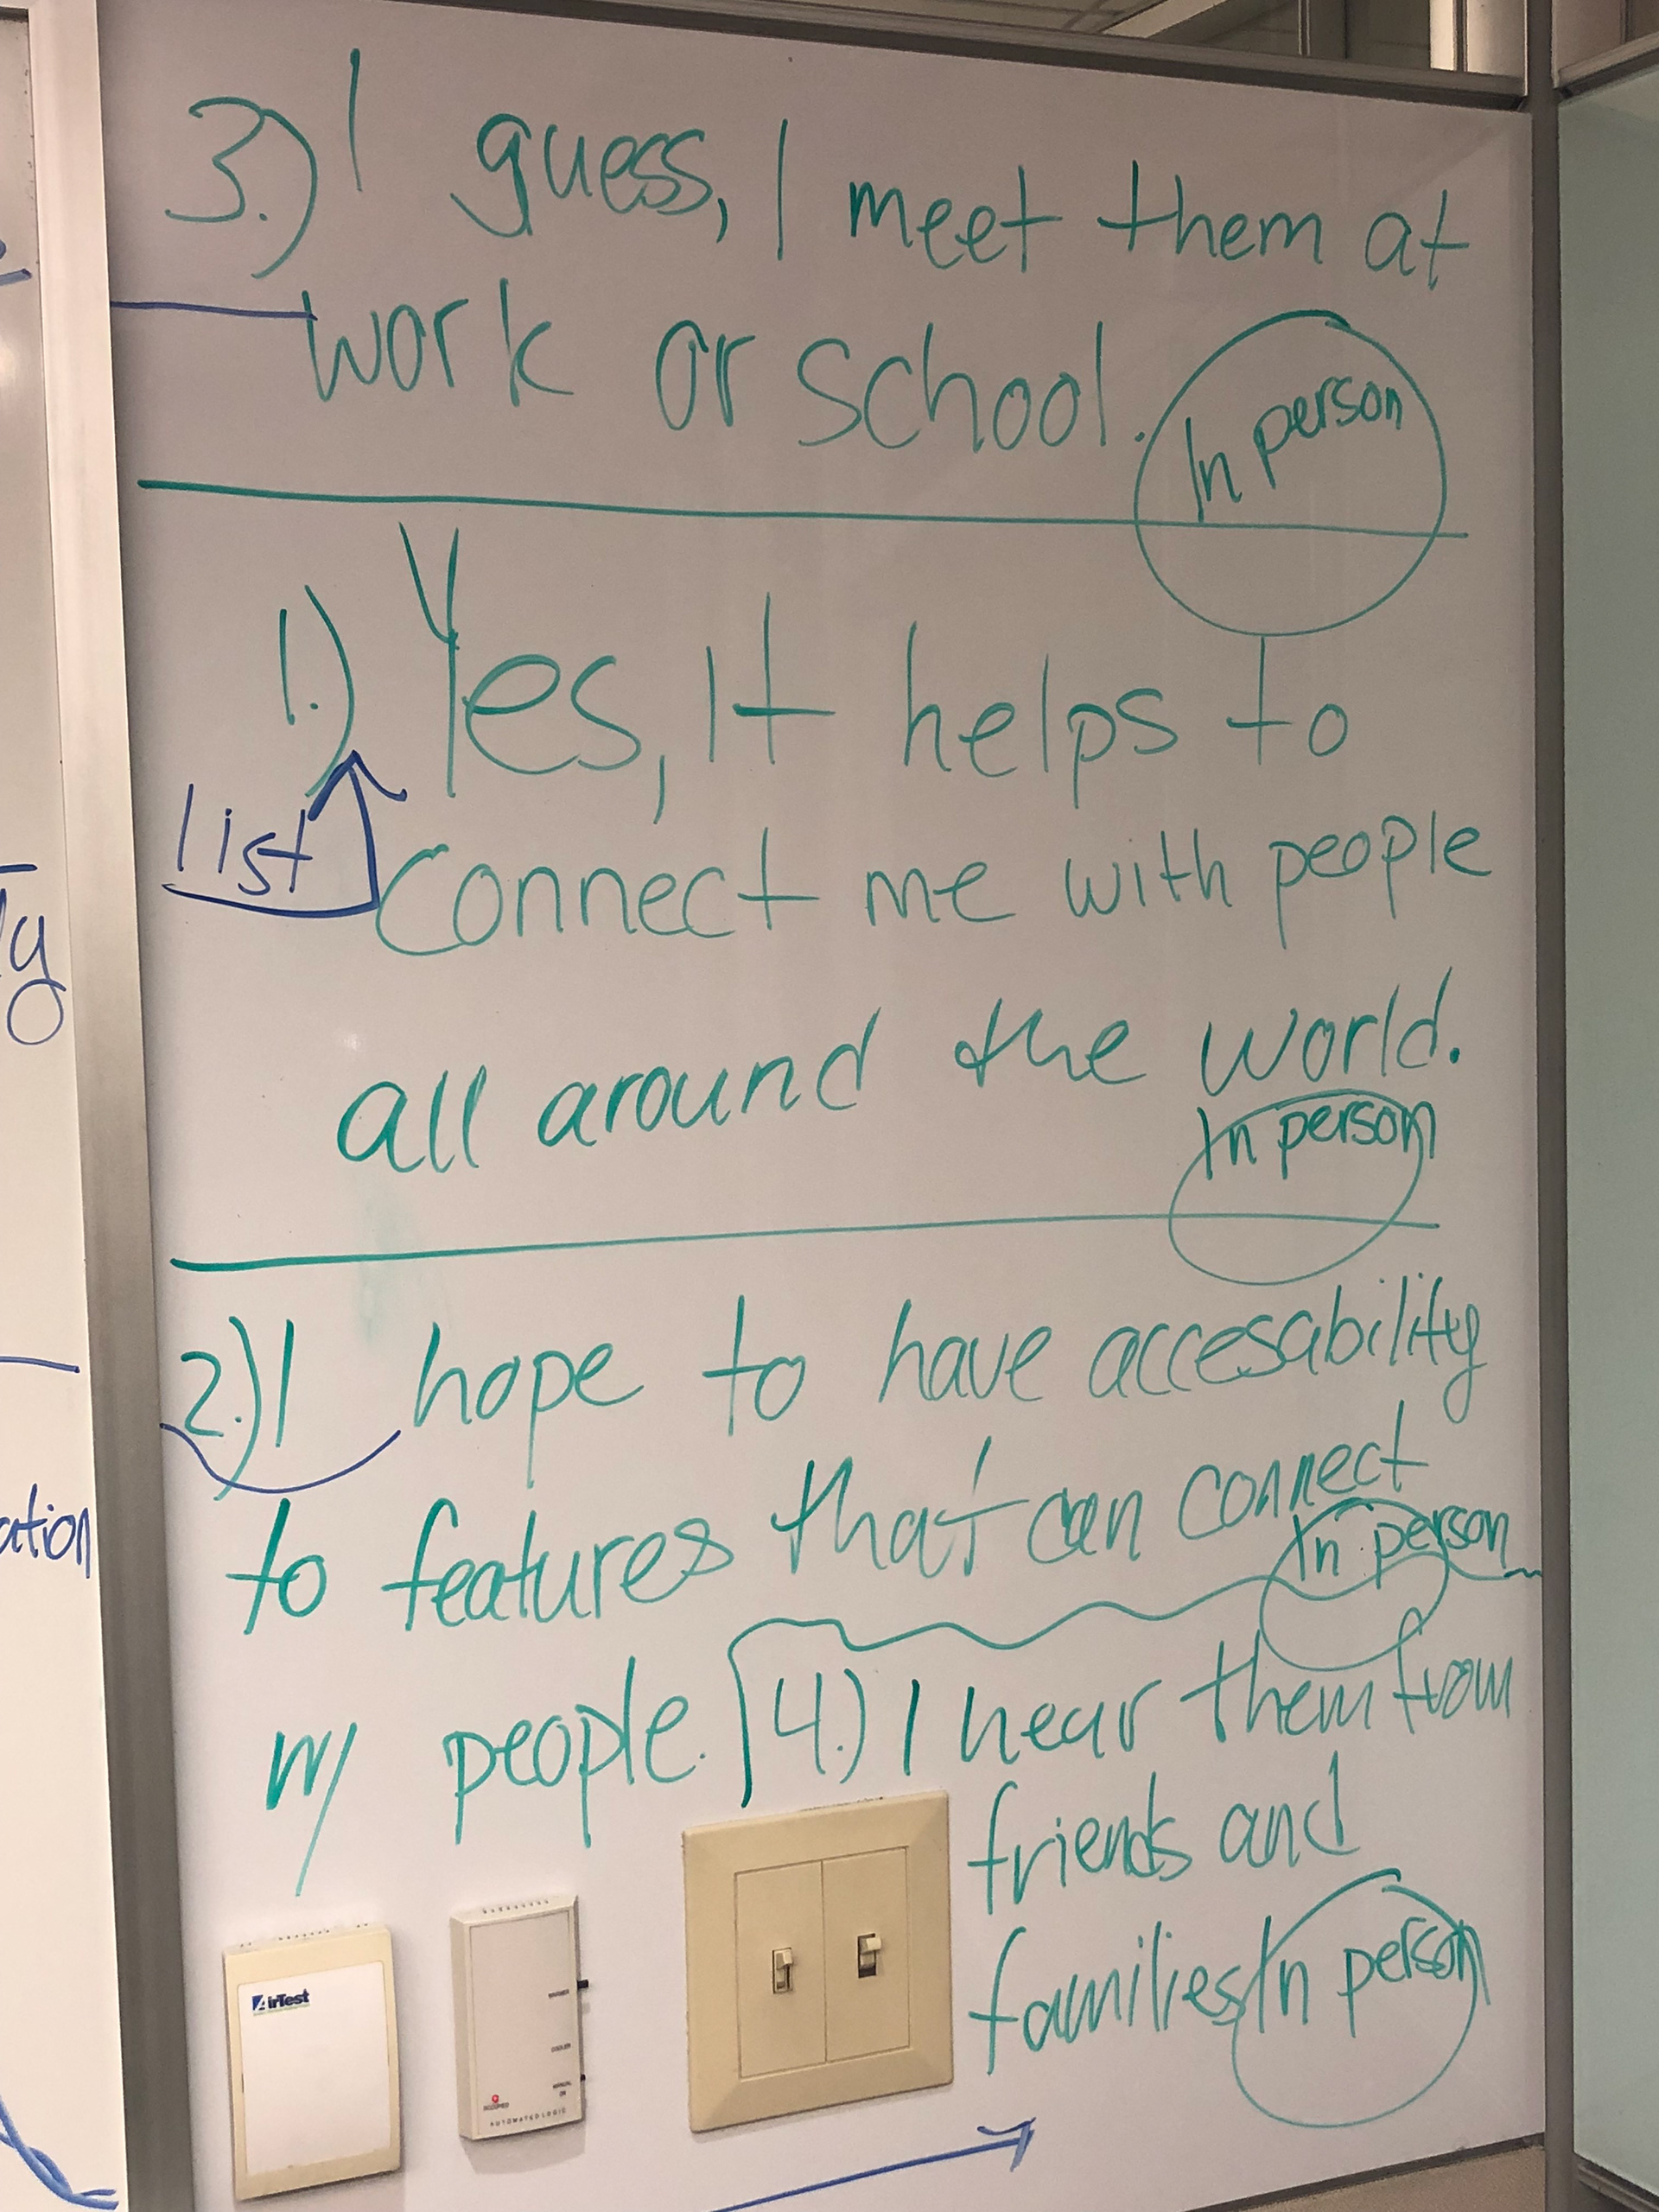 3.) I guess, I meet them at
work or school.
In person
1.) Yes, It helps to
list
connect me with people
all around the world.
In person
2.) I hope to have accesability
to features that can connect
In person
w/ people. 4.) I hear them from
friends and
families In person
AirTest
AUTOMATED LOGIC
ly
ation